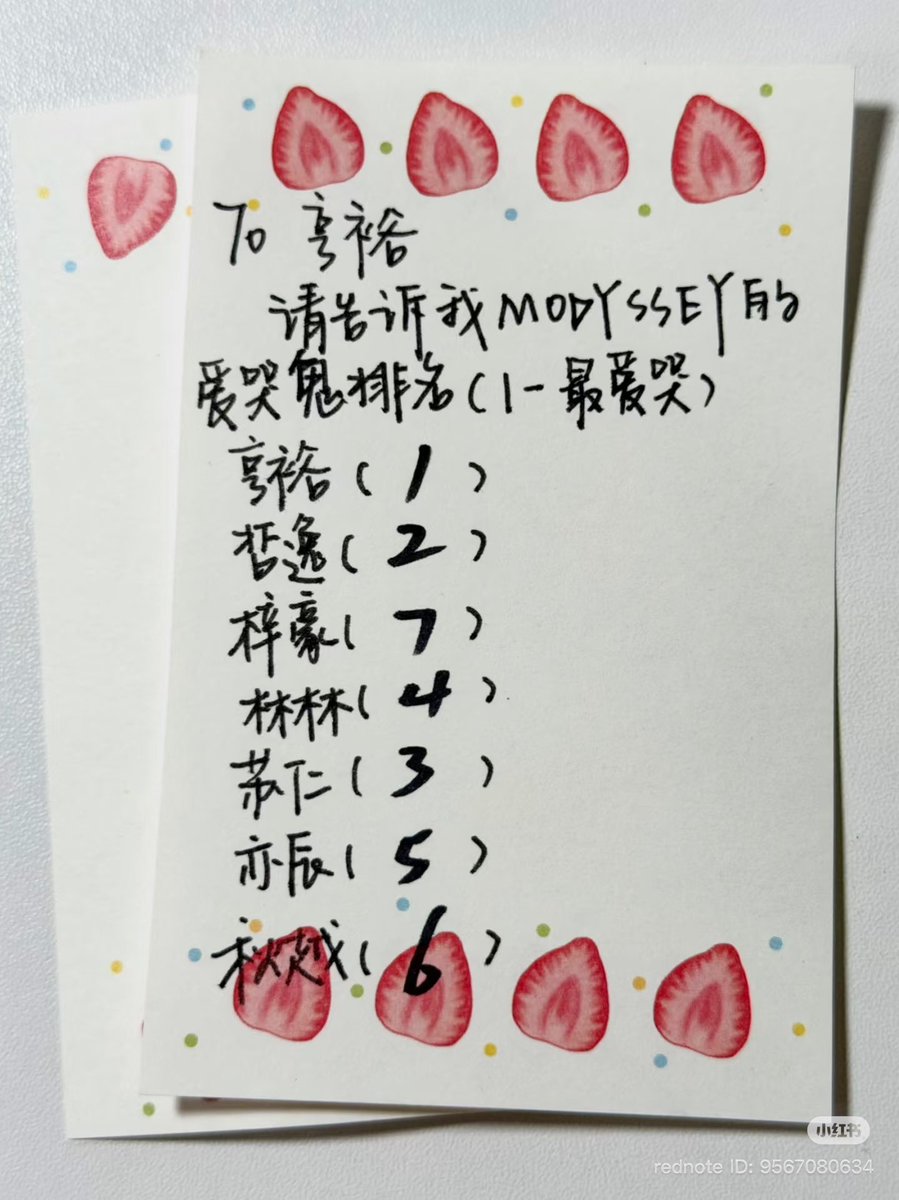 To 亨裕
请告诉我MODYSSEY的
爱哭鬼排名(1-最爱哭)
亨裕(1)
哲逸(2)
梓豪(7)
林林(4)
苏仁(3)
亦辰(5)
秋越(6)
小红书
rednote ID: 9567080634